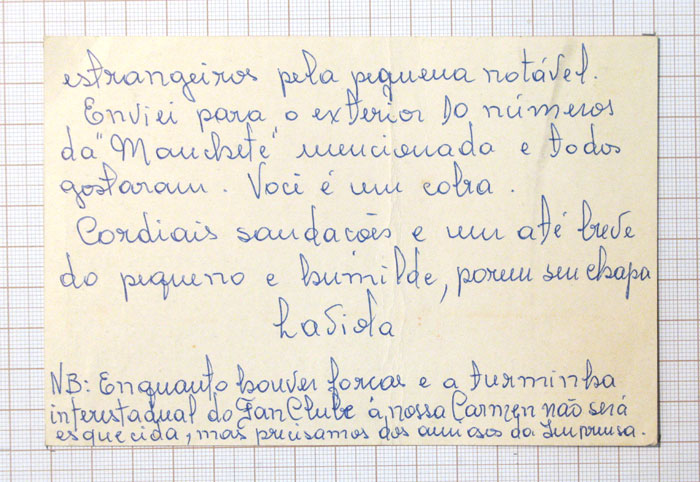 estrangeiros pela pequena notável.
Enviei para o exterior 10 números
da "Manchete" mencionada e todos
gostaram. Voci é um cobra.
Cordiais saudacões e um até breve
do pequeno e humilde, porem seu chapa
Laviola
NB: Enquanto houver forcas e a turminha
interestadual do Fan Clube á nossa Carmen não será
esquecida, mas precisamos dos amigos da Imprensa.